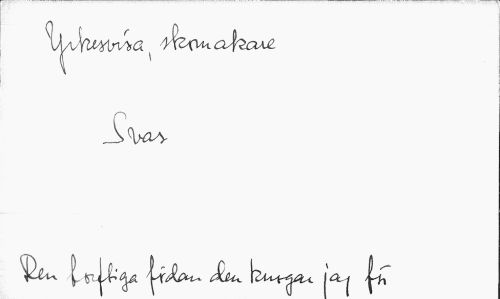 Yrkesvisa, skomakare
Svas
Den borstiga sidan den knogar jag för